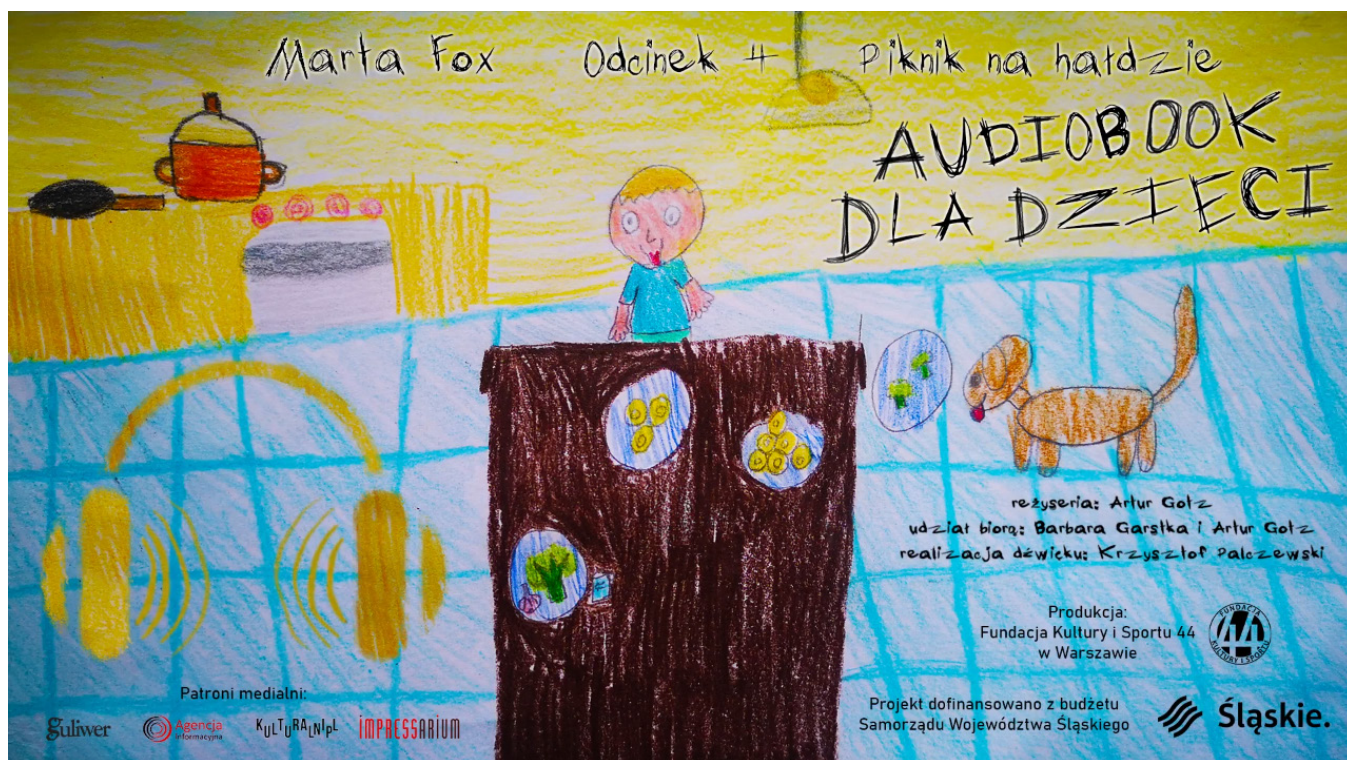 Marta Fox Odcinek 4 Piknik na hałdzie
AUDIOBOOK
DLA DZIECI
reżyseria: Artur Gotz
udział biorą: Barbara Garstka i Artur Gotz
realizacja dźwięku: Krzysztof Palczewski
Produkcja:
Fundacja Kultury i Sportu 44
w Warszawie
FUNDACJA
44
KULTURY I SPORTU
Patroni medialni:
guliwer
Agencja
Informacyjna
KULTURALNIPL
IMPRESSARIUM
Projekt dofinansowano z budżetu
Samorządu Województwa Śląskiego
Śląskie.